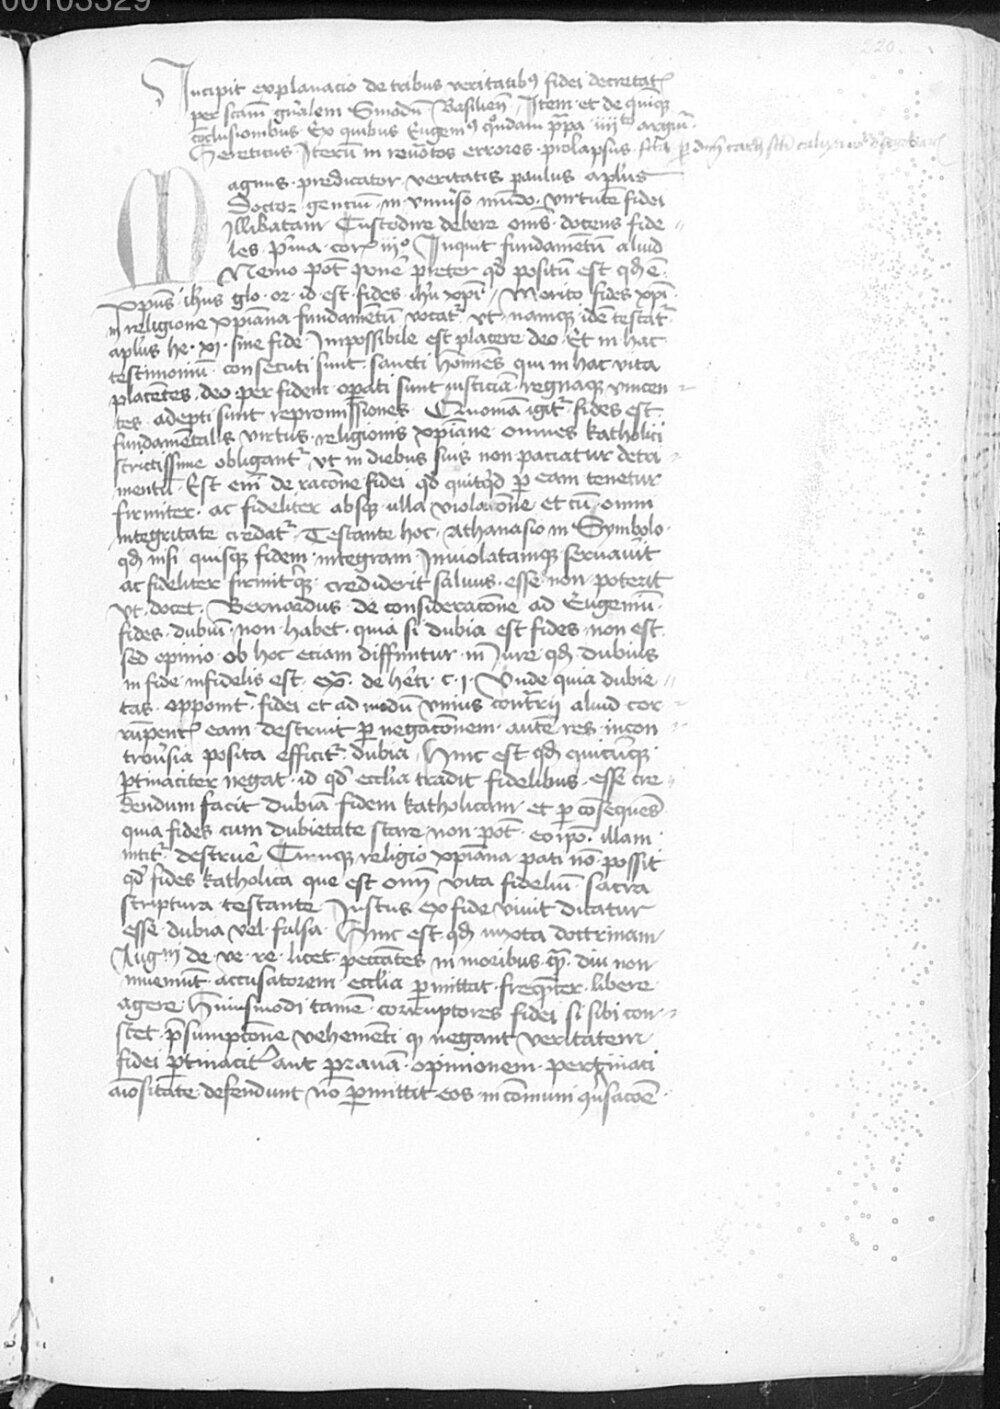 00103329
220
Incipit explanacio de tribus veritatibꝰ fidei decretatꝭ
per scām gn̄alem Sinodū Basilien̄ Item et de quiqꝫ
cōclusionibus Ex quibus Eugeniꝰ quōdam papa iiii argūr
Hereticus Iterū in reuōtos errores prolapsus
Magnus predicator veritatis paulus aplūs
Doctor gentiū in vniuso mūdo virtutē fidei
Illibatam Custodire debere oīns docens fide
les prima cor iiiº Inquit fundamētū aliud
Nemo pōt ponē preter qd positū est qd ē
xpūs ihus glo or id est fides ihū xpī Merito fides xpī
in religione xpiāna fundamētū vocatr vt namqꝫ idē testatr
aplūs he xi sine fide Impossibile est placere deo Et in hac
testimoniū consecuti sunt sancti hōmēs qui in hac vita
placētes deo per fidem opati sunt iusticiā regnaqꝫ vincen
tes adepti sunt repromissiones Quoniā igitr fides est
fundamētalis virtus religionis xpiane omnes katholici
strictissime obligantr vt in diebus suis non paciatur detri
mentū Est enī de racōne fidei qd quitqd p eam tenetur
firmiter ac fideliter absqꝫ ulla violacōne et cū omni
integritate credatr Testante hoc Athanasio in Symbolo
qd nisi quisqꝫ fidem integram Inuiolatamqꝫ seruauit
ac fideliter firmitqꝫ crediderit saluus esse non poterit
Vt docet Bernardus de consideracōne ad Eugeniū
fides dubiū non habet quia si dubia est fides non est
sed opinio ob hoc eciam diffinitur in Iure qd dubius
in fide infidelis est ex de heti c i Vnde quia dubie
tas opponitr fidei et ad modū vnius contrrii aliud cor
rūpentꝭ eam destruit p negacōnem autē res incon
trousia posita efficitr dubia Hinc est qd quicūqꝫ
ptinaciter negat id qd ecclia tradit fidelibus esse cre
dendum facit dubiā fidem katholicam et p cōsequens
quia fides cum dubietate stare non pōt eoipō illam
nititr destruē Cumqꝫ religio xpiana pati nō possit
qd fides katholica que est oīm vita fideliū sacra
scriptura testante Iustus ex fide viuit dicatur
esse dubia vel falsa Hinc est qd iuxta doctrinam
Augni de ve re licet peccātes in moribus qꝫ diu non
inueniūt accusatorem ecclia pmittat freqnter libere
agere Huiusmodi tamē corruptores fidei si sibi con
stet psumptōne vehementi qui negant veritatem
fidei ptinacitr aut prauam opinionem perginaci
aīositate defendunt nō pmittit eos in cōmuni qnsacōe